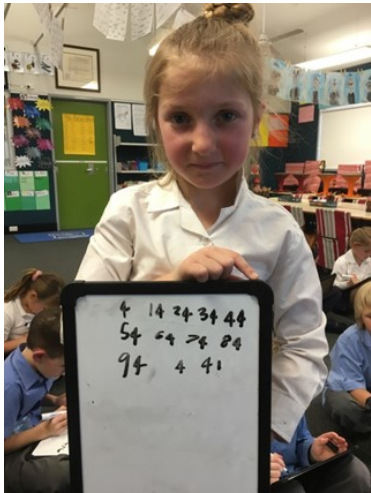 4 14 24 34 44
54 64 74 84
94 4 41